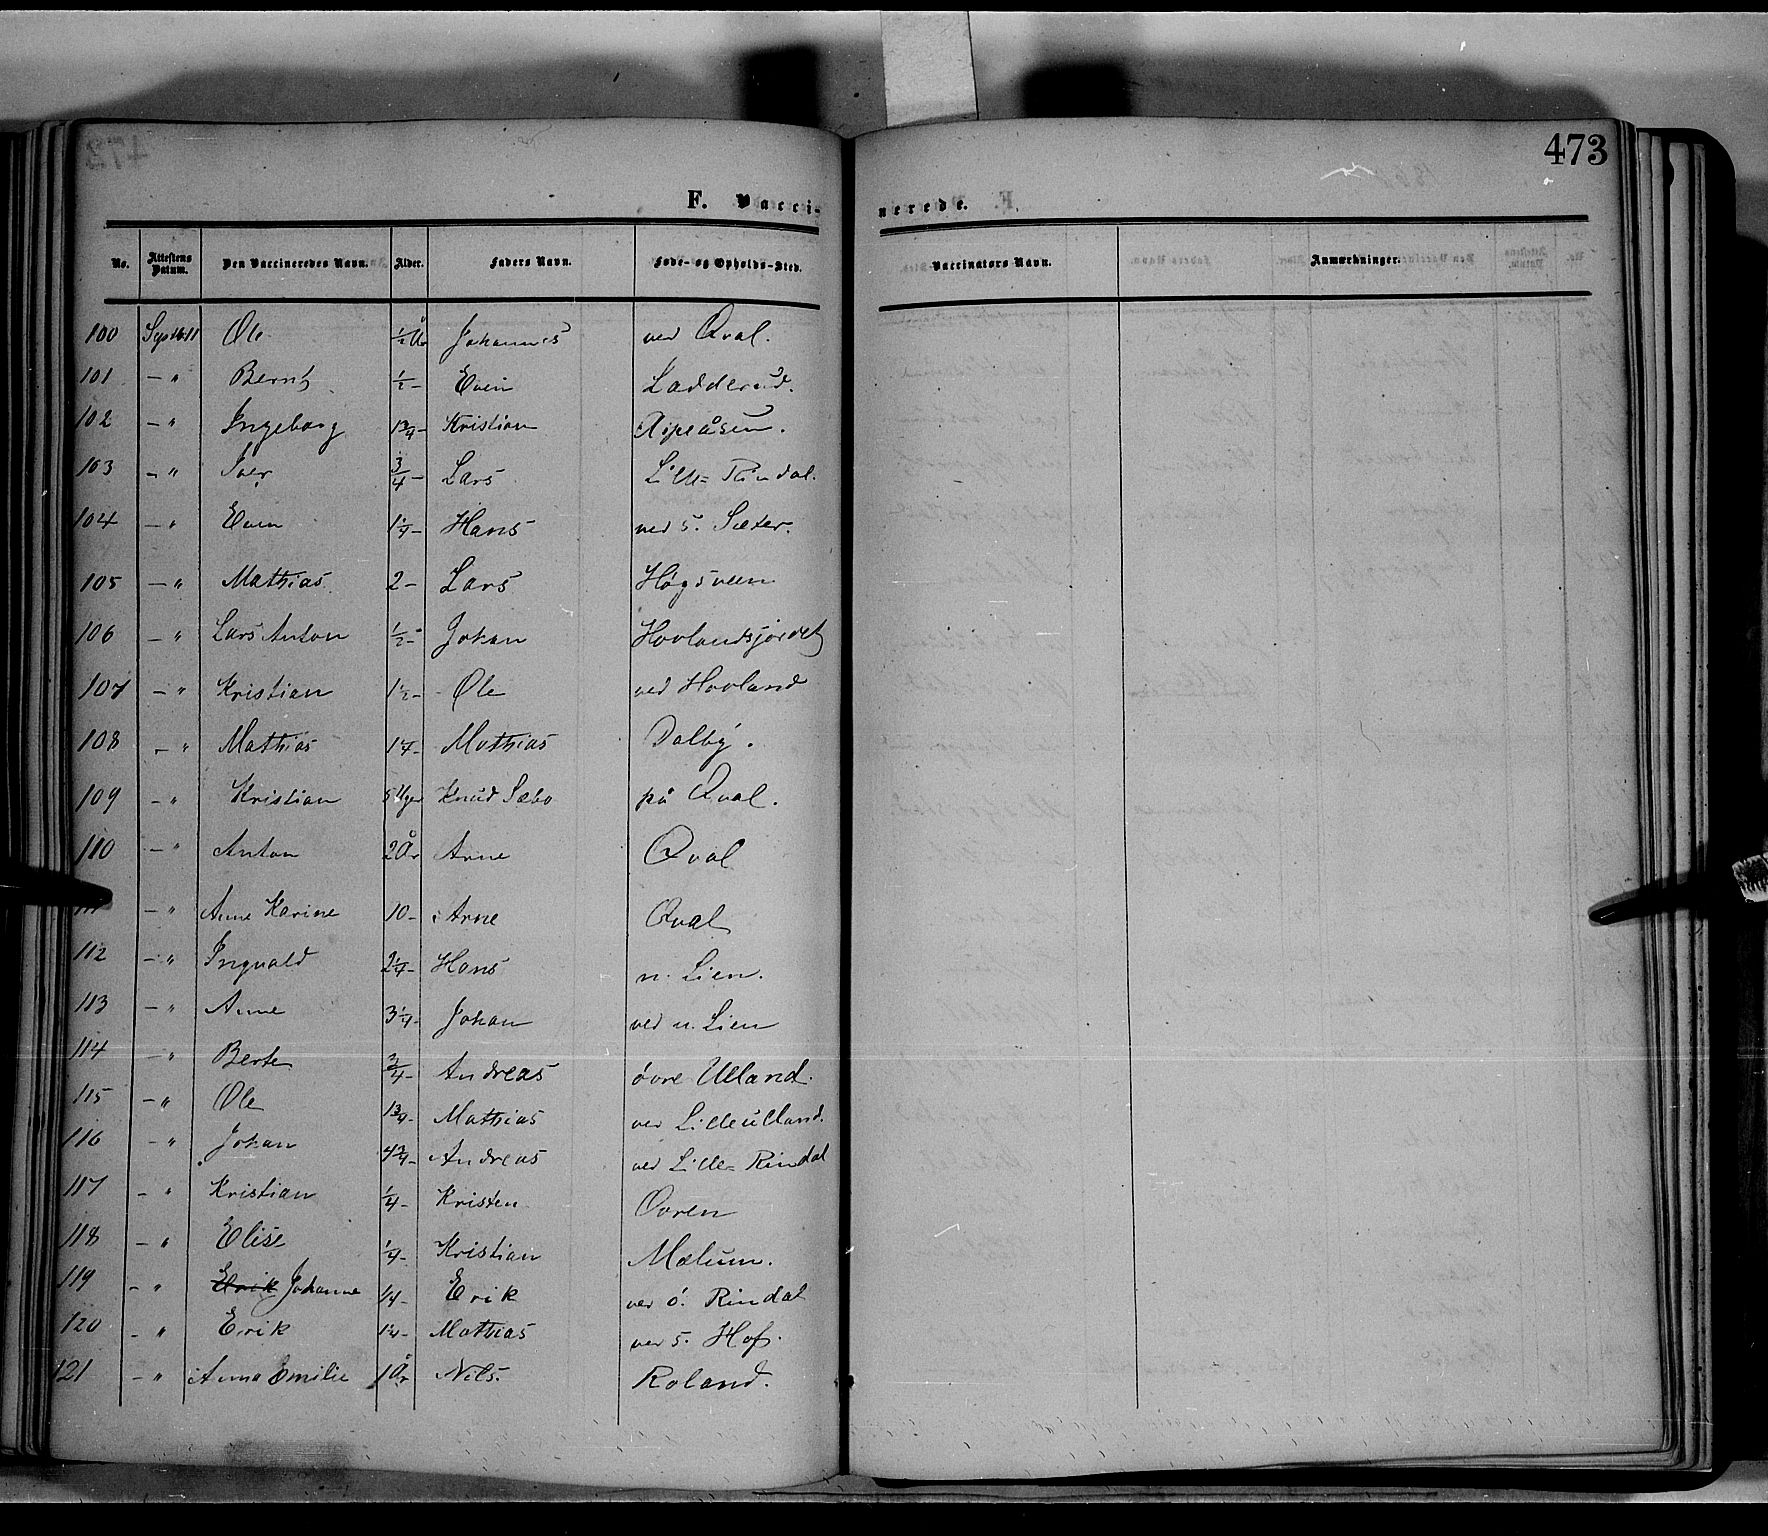 473
F. Vaccinerede.
No. Attestens Datum. Den Vaccineredes Navn. Alder. Faders Navn. Føde- og Opholds-Sted. Vaccinators Navn. Anmærkninger.
100 Septb 11 Ole ½ År Johannes ved Qval.
101 – " Bernt ½ – Even Ladderud.
102 – " Ingeborg 1¾ – Kristian Ripeåsen.
103 – " Iver ¾ – Lars Lille-Rindal.
104 – " Even 1¼ – Hans ved s. Sæter.
105 – " Mathias 2 – Lars Høgsveen
106 – " Lars Anton ½ – Johan Hovlandsjordet
107 – " Kristian 1½ – Ole ved Hovland
108 – " Mathias 1¼ – Mathias Dalby.
109 – " Kristian 5 Uger Knud Sæbo på Qval.
110 – " Anton 2 År Arne Qval
111 – " Anne Karine 10 – Arne Qval
112 – " Ingvald 2¼ – Hans n. Lien.
113 – " Anne 3¼ – Johan ved n. Lien
114 – " Berte ¾ – Andreas øvre Ulland.
115 – " Ole 1¾ – Mathias ved Lilleulland.
116 – " Johan 4¾ – Andreas ved Lille-Rindal
117 – " Kristian ¼ – Kristen Ovren
118 – " Elise ¼ – Kristian Mælum.
119 – " Erik Johanne ¼ – Erik ved ø. Rindal
120 – " Erik 1¼ – Mathias ved s. Hof.
121 – " Anna Emilie 1 År Nils. Roland.